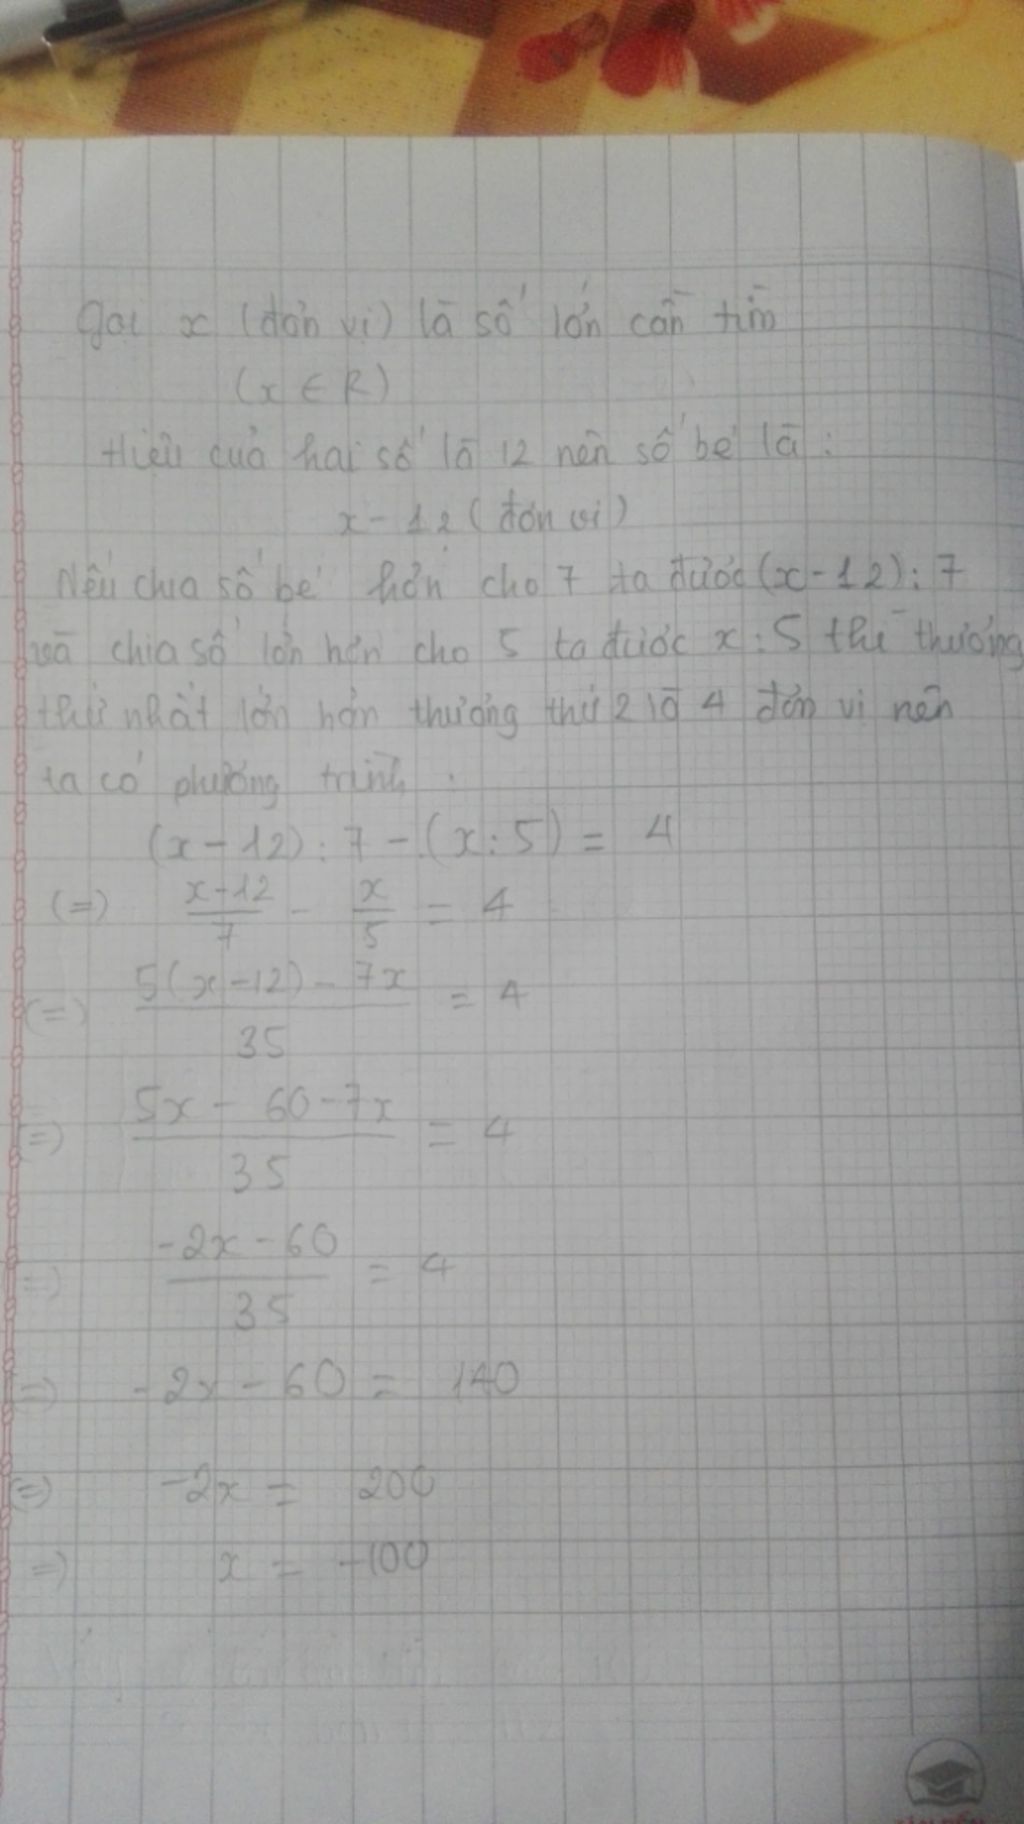 Gọi x (đơn vị) là số lớn cần tìm
(x ∈ R)
Hiệu của hai số là 12 nên số bé là :
x - 12 (đơn vị)
Nếu chia số bé hơn cho 7 ta được (x-12) : 7
và chia số lớn hơn cho 5 ta được x : 5 thì thương
thứ nhất lớn hơn thương thứ 2 là 4 đơn vị nên
ta có phương trình :
(x - 12) : 7 - (x : 5) = 4
(=) \frac{x-12}{7} - \frac{x}{5} = 4
(=) \frac{5(x-12) - 7x}{35} = 4
=) \frac{5x - 60 - 7x}{35} = 4
=) \frac{-2x - 60}{35} = 4
=) -2x - 60 = 140
(=) -2x = 200
=) x = -100